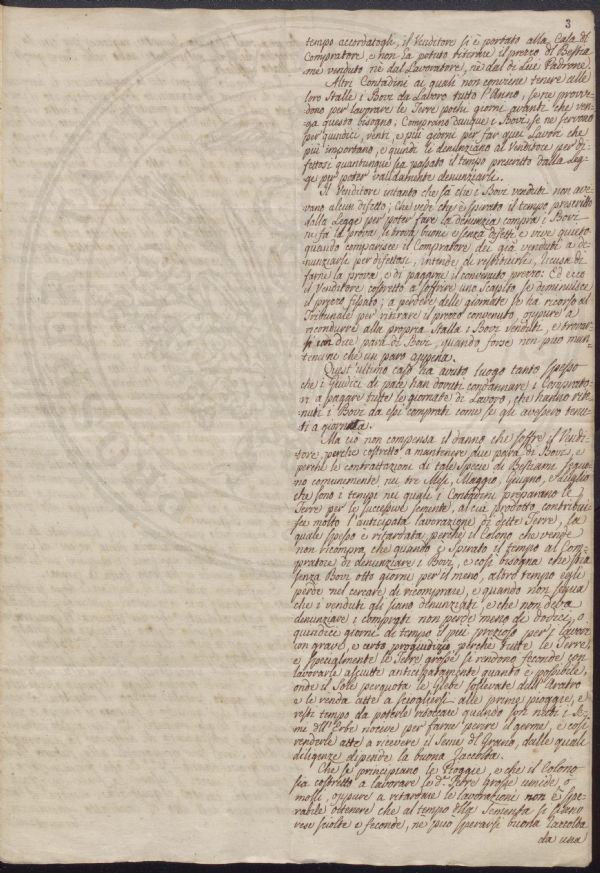 3
tempo accordatogli, il Venditore si è portato alla Casa del
Compratore, e non ha potuto ritirare il prezzo di Bestia
me venduto ne dal Lavoratore, ne dal di Lui Padrone.
Altri Contadini ai quali non conviene tenere nelle
loro Stalle i Bovi da Lavoro tutto l'Anno, se ne provve-
dono per lavorare le Terre pochi giorni avanti che ven-
ga questo bisogno; Comprano dunque i Bovi, se ne servono
per quindici, venti, e più giorni per far quei Lavori che
più importano, e quindi li denunziano al Venditore per di-
fettosi quantunque sia passato il tempo prescritto dalla Leg-
ge per poter validamente denunziarli.
Il Venditore intanto che sà che i Bovi venduti non ave-
vano alcun difetto; che vede che è spirato il tempo prescritto
dalla Legge per poter fare la denunzia compra i Bovi
ne fà la prova, li trova buoni e senza difetti, e vive quieto,
quando comparisce il Compratore dei già venduti a de-
nunziarli per difettosi, intende di restituirli, ricusa di
farne la prova, e di pagarne il convenuto prezzo: Ed ecco
il Venditore costretto a soffrire uno Scapito se diminuisce
il prezzo fissato; a perdere delle giornate se ha ricorso al
Tribunale per ritirare il prezzo convenuto, oppure a
ricondurre alla propria Stalla i Bovi venduti, e trovar-
si con due para di Bovi, quando forse non può man-
tenerne che un paro appena.
Quest'ultimo caso ha avuto luogo tanto spesso
che i Giudici di pace han dovuti condannare i Comprato-
ri a pagare tutte le giornate di Lavoro, che hanno rite-
nuti i Bovi da essi comprati come se gli avessero tenu-
ti a giornata.
Ma ciò non compensa il danno che soffre il Vendi-
tore, perchè costretto a mantenere due para di Bovi, e
perchè le contrattazioni di tale Specie di Bestiame seguo-
no comunemente nei tre Mesi, Maggio, Giugno, e Luglio
che sono i tempi nei quali i Contadini preparano le
Terre per le successive semente, al cui prodotto contribui-
sce molto l'anticipata lavorazione di dette Terre, la
quale spesso è ritardata, perchè il Colono che vende
non ricompra, che quando è spirato il tempo al Com-
pratore di denunziare i Bovi, e così bisogna che stia
senza Bovi otto giorni per il meno, altro tempo egli
perde nel cercare di ricomprare, e quando non segua
che i venduti gli siano denunziati, e che non debba
denunziare i comprati non perde meno di dodici, o
quindici giorni di tempo il più prezioso per i lavori
con grave, e certo pregiudizio perchè tutte le Terre,
e specialmente le Terre grosse si rendono feconde con
lavorarle asciutte anticipatamente quanto è possibile,
onde il Sole percuota le Glebe sollevate dall'Aratro
e le renda atte a sciogliersi alle prime piogge, e
resti tempo da poterle riboccare quando son nati i Se-
mi dell'Erbe nocive per farne perire il germe, e così
renderle atte a ricevere il Seme di Grano, dalle quali
diligenze dipende la buona raccolta.
Che se principiano le Piogge, e che il Colono
sia costretto a lavorare le d.e Terre Grosse umide o
molli, oppure a ritardare le lavorazione non è spe-
rabile ottenere che al tempo della Sementa si siano
rese sciolte e feconde, ne può sperarsi buona raccolta
da una